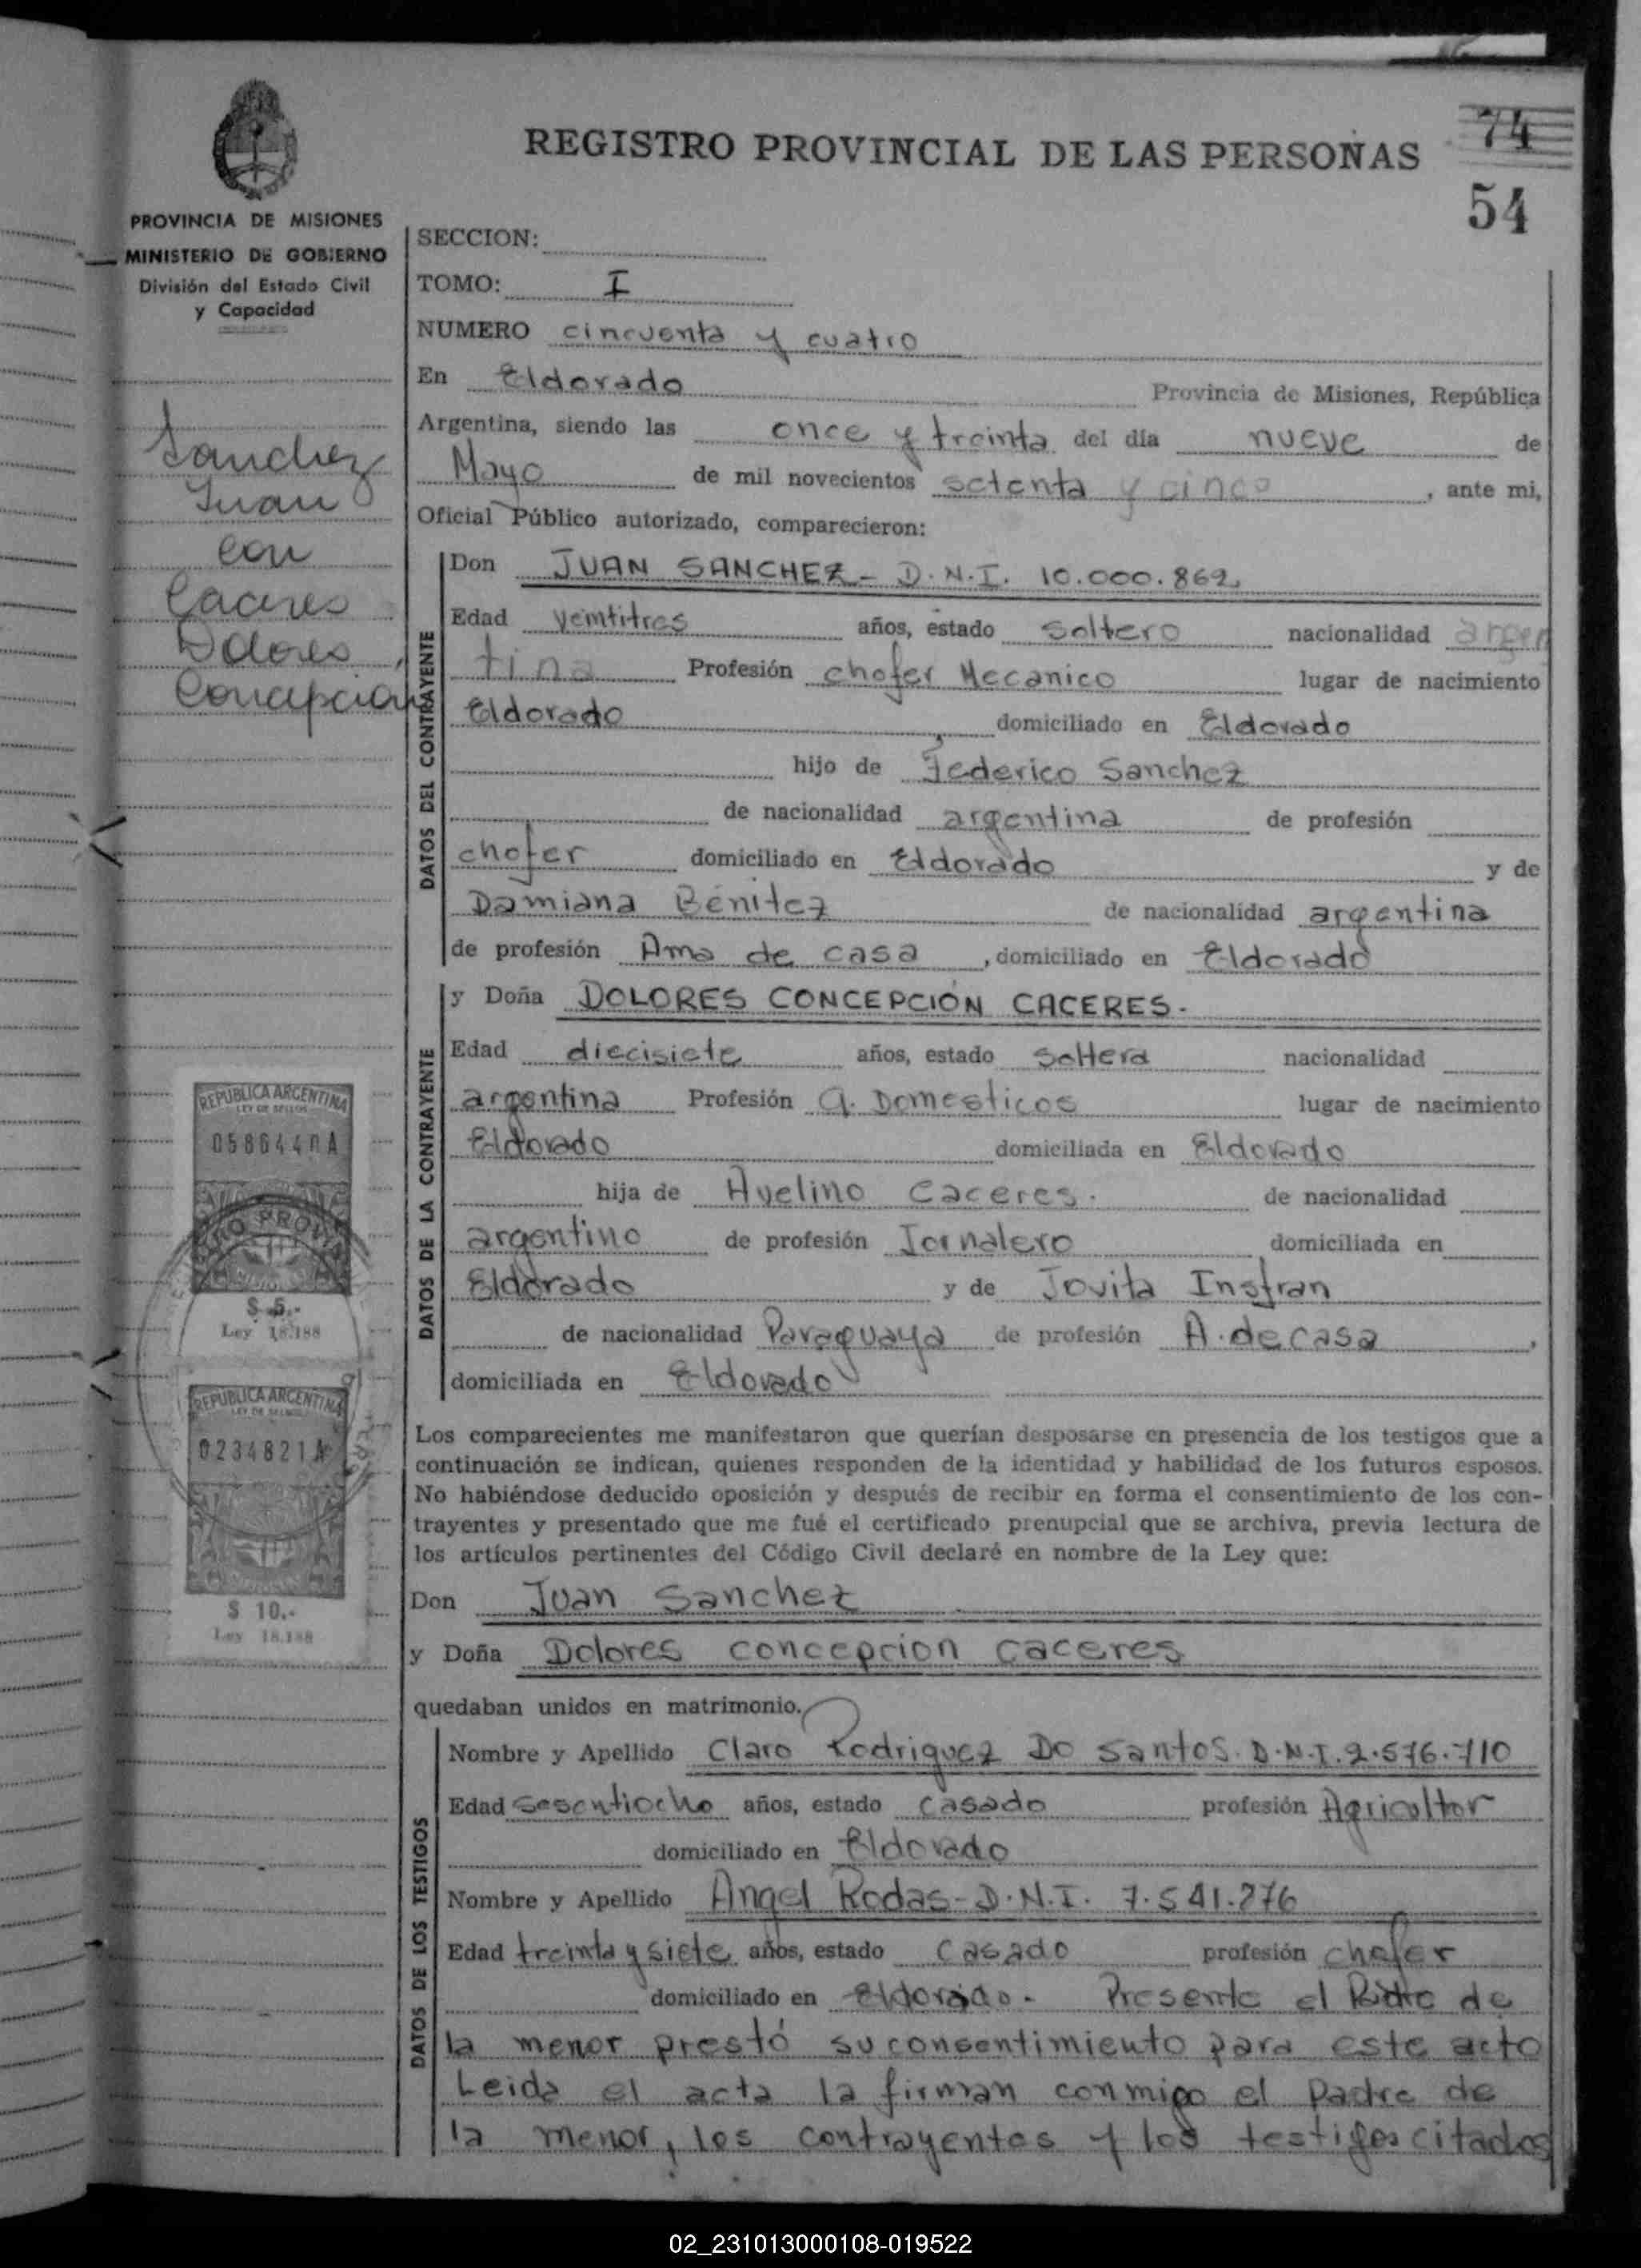 REGISTRO PROVINCIAL DE LAS PERSONAS
74
54
PROVINCIA DE MISIONES
MINISTERIO DE GOBIERNO
División del Estado Civil
y Capacidad
Sanchez
Juan
con
Caceres
Dolores
Concepcion
SECCION:
TOMO: I
NUMERO cincuenta y cuatro
En Eldorado Provincia de Misiones, República
Argentina, siendo las once y treinta del día nueve de
Mayo de mil novecientos setenta y cinco, ante mi,
Oficial Público autorizado, comparecieron:
DATOS DEL CONTRAYENTE
Don JUAN SANCHEZ - D.N.I. 10.000.862
Edad veintitres años, estado soltero nacionalidad argen
tina Profesión chofer Mecanico lugar de nacimiento
Eldorado domiciliado en Eldorado
hijo de Federico Sanchez
de nacionalidad argentina de profesión
chofer domiciliado en Eldorado y de
Damiana Benitez de nacionalidad argentina
de profesión Ama de casa, domiciliado en Eldorado
DATOS DE LA CONTRAYENTE
y Doña DOLORES CONCEPCION CACERES.
Edad diecisiete años, estado soltera nacionalidad
argentina Profesión Q. Domesticos lugar de nacimiento
Eldorado domiciliada en Eldorado
hija de Avelino Caceres. de nacionalidad
argentino de profesión Jornalero domiciliada en
Eldorado y de Jovita Insfran
de nacionalidad Paraguaya de profesión A. de casa,
domiciliada en Eldorado
REPUBLICA ARGENTINA
LEY DE SELLOS
0586440A
$ 5.-
Ley 18.188
REPUBLICA ARGENTINA
LEY DE SELLOS
0234821A
$ 10.-
Ley 18.188
Los comparecientes me manifestaron que querían desposarse en presencia de los testigos que a
continuación se indican, quienes responden de la identidad y habilidad de los futuros esposos.
No habiéndose deducido oposición y después de recibir en forma el consentimiento de los con-
trayentes y presentado que me fué el certificado prenupcial que se archiva, previa lectura de
los artículos pertinentes del Código Civil declaré en nombre de la Ley que:
Don Juan Sanchez
y Doña Dolores concepcion caceres
quedaban unidos en matrimonio.
DATOS DE LOS TESTIGOS
Nombre y Apellido Claro Rodriguez Do Santos. D.N.I. 2.576.710
Edad sesentiocho años, estado casado profesión Agricultor
domiciliado en Eldorado
Nombre y Apellido Angel Rodas - D.N.I. 7.541.276
Edad treinta y siete años, estado casado profesión chofer
domiciliado en Eldorado. Presente el Padre de
la menor prestó su consentimiento para este acto
Leida el acta la firman conmigo el Padre de
la menor, los contrayentes y los testigos citados
02_231013000108-019522